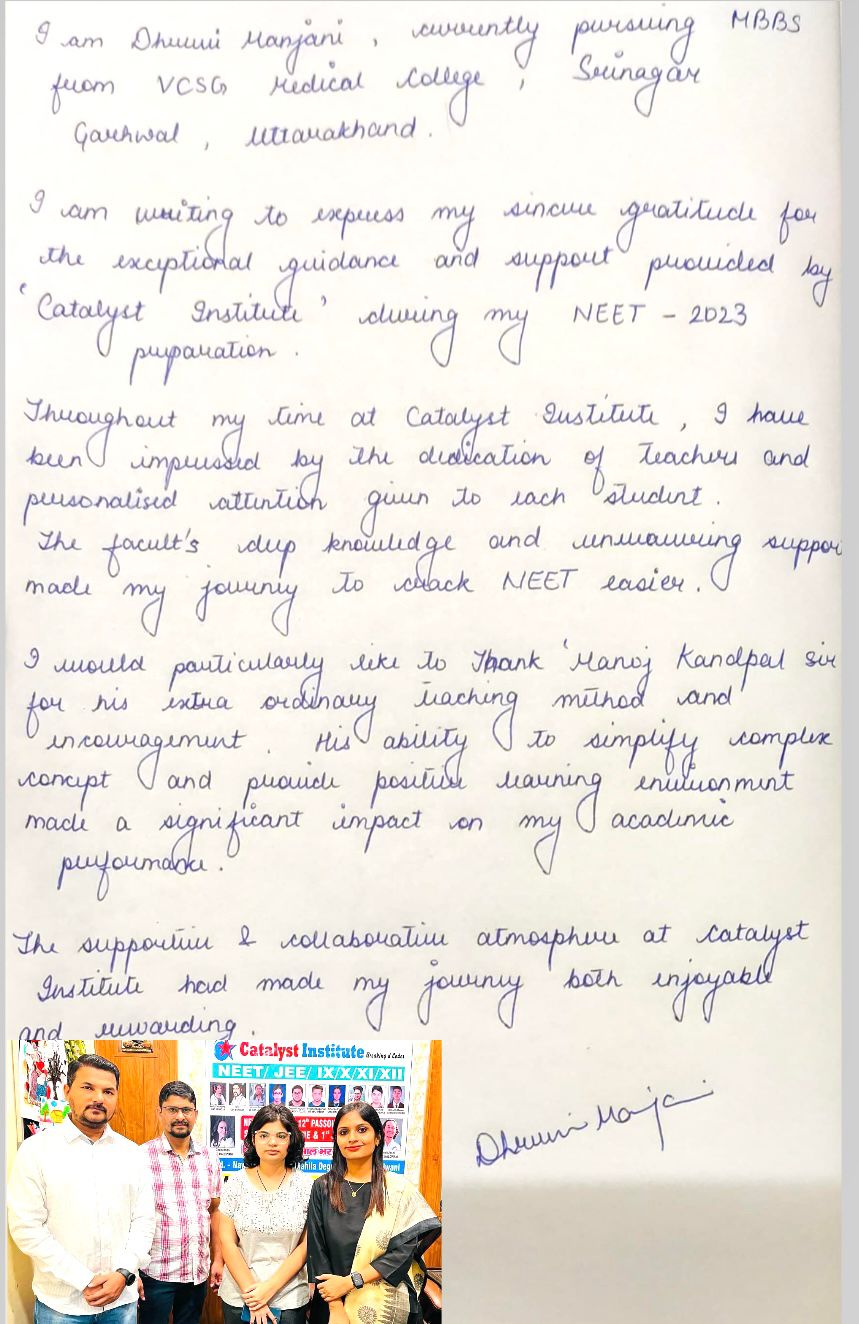 I am Dhruvi Manjani, currently pursuing MBBS
from VCSG Medical College, Srinagar
Garhwal, Uttarakhand.
I am writing to express my sincere gratitude for
the exceptional guidance and support provided by
'Catalyst Institute' during my NEET - 2023
preparation.
Throughout my time at Catalyst Institute, I have
been impressed by the dedication of teachers and
personalised attention given to each student.
The facult's deep knowledge and unwavering suppor
made my journey to crack NEET easier.
I would particularly like to Thank 'Manoj Kandpal sir
for his extra ordinary teaching method and
encouragement. His ability to simplify complex
concept and provide positive learning environment
made a significant impact on my academic
performance.
The supportive & collaborative atmosphere at Catalyst
Institute had made my journey both enjoyable
and rewarding.
Catalyst Institute Breaking d Codes
NEET/ JEE/ IX/X/XI/XII
12th PASSO
E & 1
Dhruvi Manjani